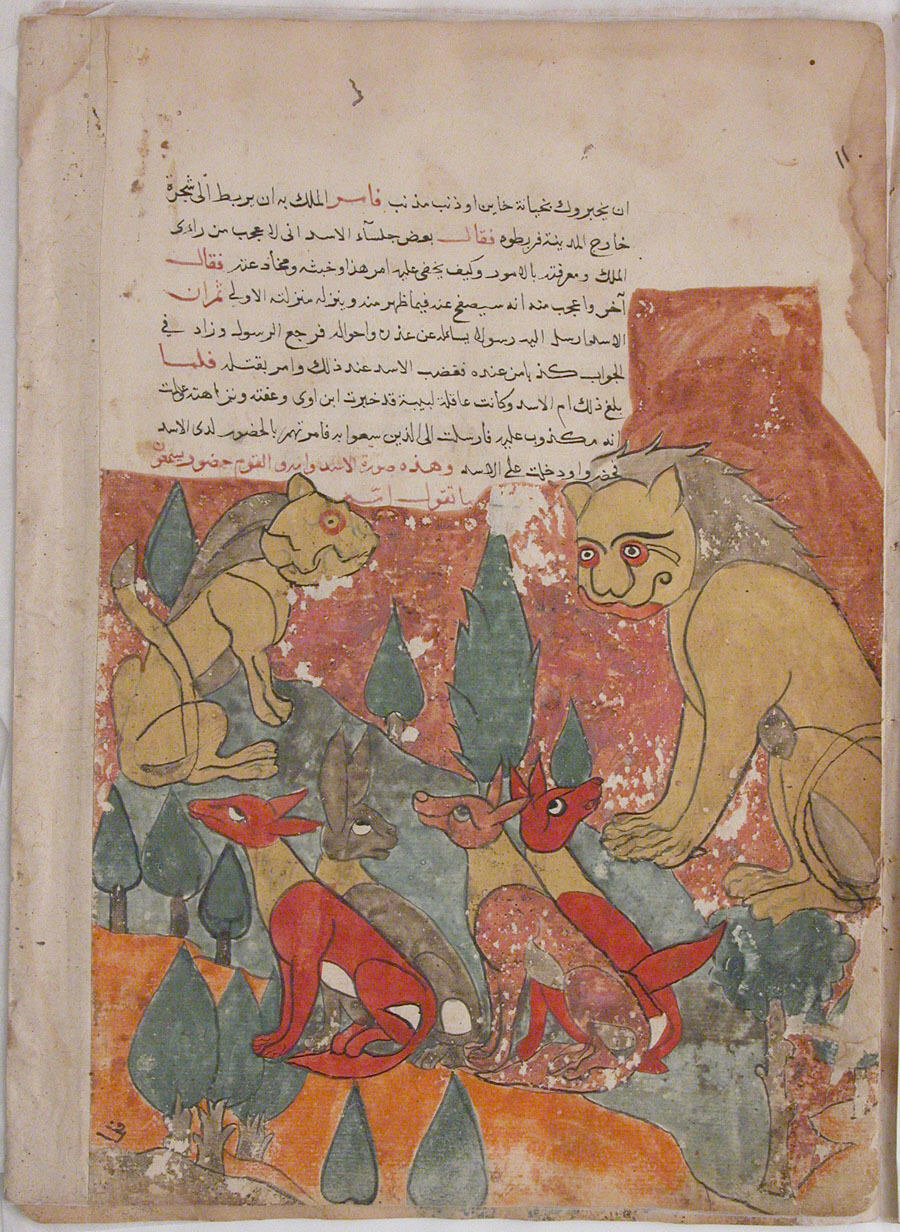 ١١
ان يخبروك بخيانة خاين او ذنب مذنب فامر الملك به ان يربط الى شجرة
خارج المدينة فربطوه فقال بعض جلسآء الاسد انى لا عجب من راى
الملك ومعرفته بالامور وكيف يخفى عليه امر هذا وخبثه ومخادعته فقال
آخر واعجب منه انه سيصفح عنه فيما ظهر منه وينزله منزلته الاولى ثم ان
الاسد ارسل اليه رسولا يساله عن عذره واحواله فرجع الرسول وزاد في
الجواب كذبا من عنده فغضب الاسد عند ذلك وامر بقتله فلما
بلغ ذلك ام الاسد وكانت عاقلة لبيبة قد خبرت ابن اوى وعفته ونزاهته علمت
انه مكذوب عليه فارسلت الى الذين سعوا به فامرتهم بالحضور لدى الاسد
فحضروا ودخلت على الاسد وهذه صورة الاسد وامه والقوم حضور يسمعون
ما تقول امه